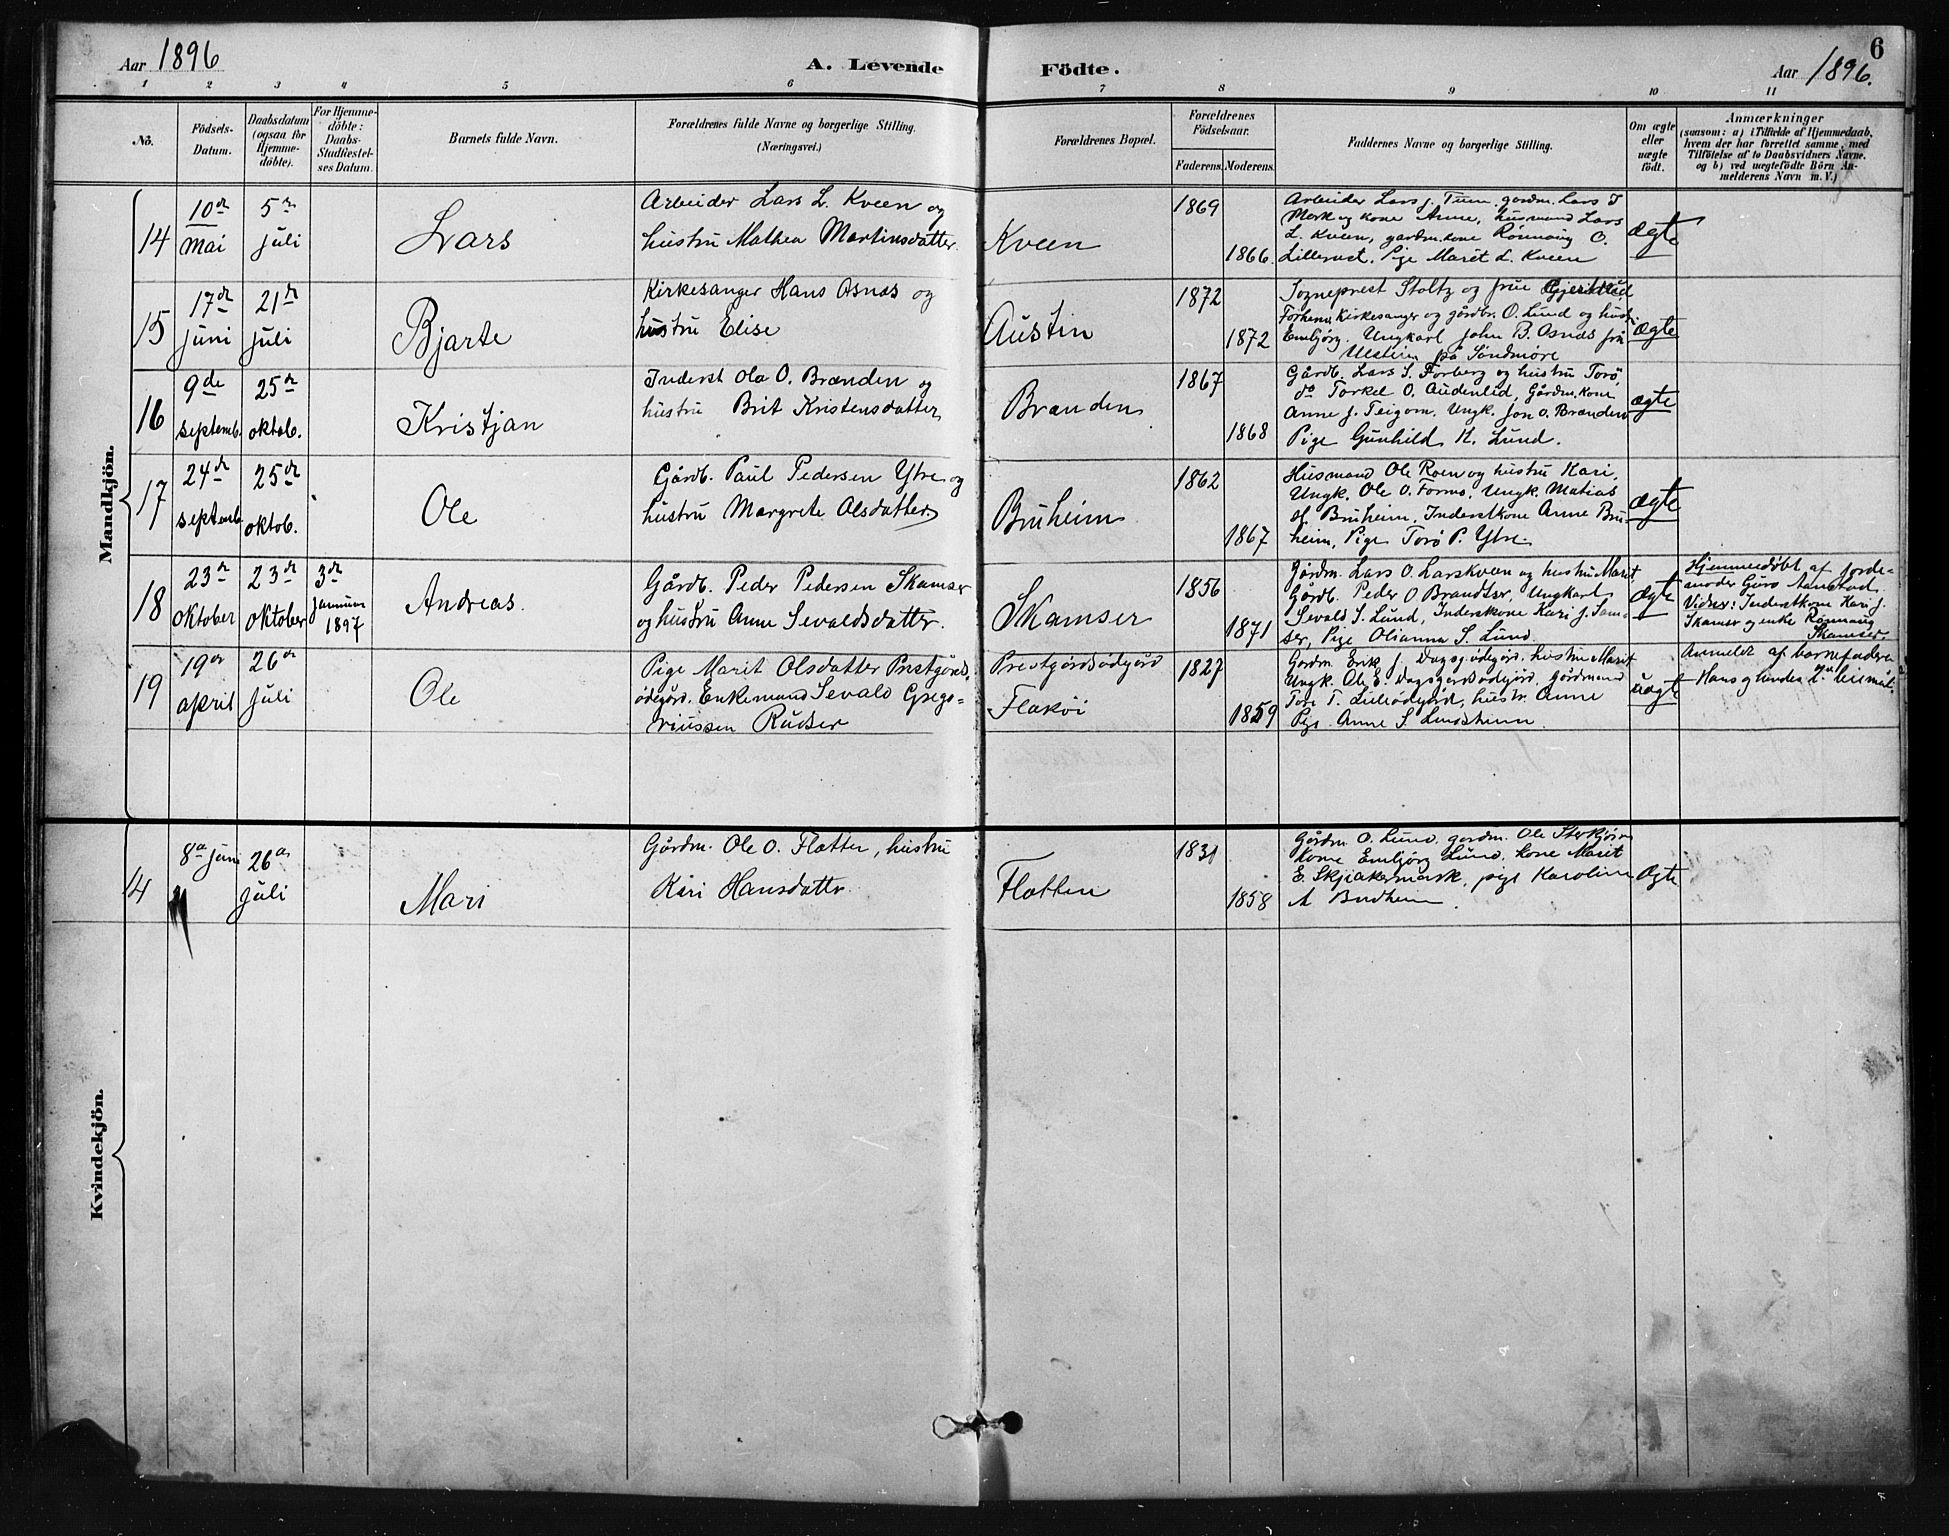 Aar 1896 A. Levende Födte. Aar 1896. 6
1 2 3 4 5 6 7 8 9 10 11
No.
Födsels-
Datum.
Daabsdatum
(ogsaa for
Hjemme-
döbte).
For Hjemme-
döbte:
Daabs-
Stadfæstel-
ses Datum.
Barnets fulde Navn.
Forældrenes fulde Navne og borgerlige Stilling.
(Næringsvei.)
Forældrenes Bopæl.
Forældrenes
Födselsaar.
Faderens. Moderens.
Faddernes Navne og borgerlige Stilling.
Om ægte
eller
uægte
födt.
Anmærkninger
(saasom: a) i Tilfælde af Hjemmedaab,
hvem der har forrettet samme, med
Tilföielse af to Daabsvidners Navne,
og b) ved uægtefödte Börn An-
melderens Navn m. V.)
Mandkjön.
14
10de
Mai
5te
juli
Lars
Arbeider Lars L. Kveen og
hustru Mathea Martinsdatter.
Kveen
1869
1866.
Arbeider Lars J. Tum, gardm. Lars T
Mork og kone Anne, husmand Lars
L. Kveen, gardm.kone Rönnaug O.
Lillerust, Pige Marit L. Kveen
ægte
15
17de
juni
21de
juli
Bjarte
Kirkesanger Hans Osnes og
hustru Elise
Austin
1872
1872
Sogneprest Stoltz og frue
Kirkesanger og gårdbr. O. Lund og hustr.
Embjörg. Ungkarl John B. Osnes fra
Ulstein på Söndmöre
ægte
16
9de
septemb.
25de
oktob.
Kristjan
Inderst Ola O. Brænden og
hustru Brit Kristensdatter
Brænden
1867
1868
Gårdb. Lars S. Forberg og hustru Torö,
do Torkel O. Audenlid, Gårdm.kone
Anne J. Teigom. Ungk. Jon O. Brænden
Pige Gunhild K. Lund.
ægte
17
24de
septemb.
25de
oktob.
Ole
Gårdb. Paul Pedersen Ytre og
hustru Margrete Olsdatter.
Bruheim
1862
1867
Husmand Ole Roen og hustru Kari,
Ungk. Ole O. Formo, Ungk. Matias
Bruheim, Inderstkone Anne Bru-
heim, Pige Torö P. Ytre.
ægte
18
23de
oktober
23de
oktober
3de
januar
1897
Andreas.
Gårdb. Peder Pedersen Skamser
og hustru Anne Sevaldsdatter.
Skamser
1856
1871
Gårdm. Lars O. Larskveen og hustru Marit,
Gårdb. Peder O Brandtsr, Ungkarl
Sevald S. Lund, Inderskone Kari J. Sam-
ser, Pige Olianna S. Lund.
ægte
Hjemmedöbt af jorde-
moder Guro Aanstad
Vidner: Inderstkone Kari J.
Skamser og enke Rönnaug
Skamser.
19
19de
april
26de
juli
Ole
Pige Marit Olsdatter Prestgårds-
ödegård. Enkemand Sevald Grego-
riussen Rudser
Prestgårdsödegård
Flæköi
1827
1859
Gardm. Erik J. Dagsgardödegård. hustru Marit
Ungk. Ole E. Dagsgardsödegård, gårdmand
Tore T. Lilleödegård, hustr. Anne
Pige Anne S. Lundsheim
uægt
Anmeldt af barnefaderen
Kvindekjön.
14
8de juni
26de
juli
Mari
Gårdm. Ole O. Flatten, hustru
Kari Hansdatter
Flatten
1831
1858
Gårdm O. Lund, gardm. Ole Sterkjörn
Kone Embjörg Lund, kone Marit
E. Skjåkermork, pige Karoline
A Brudheim.
ægte